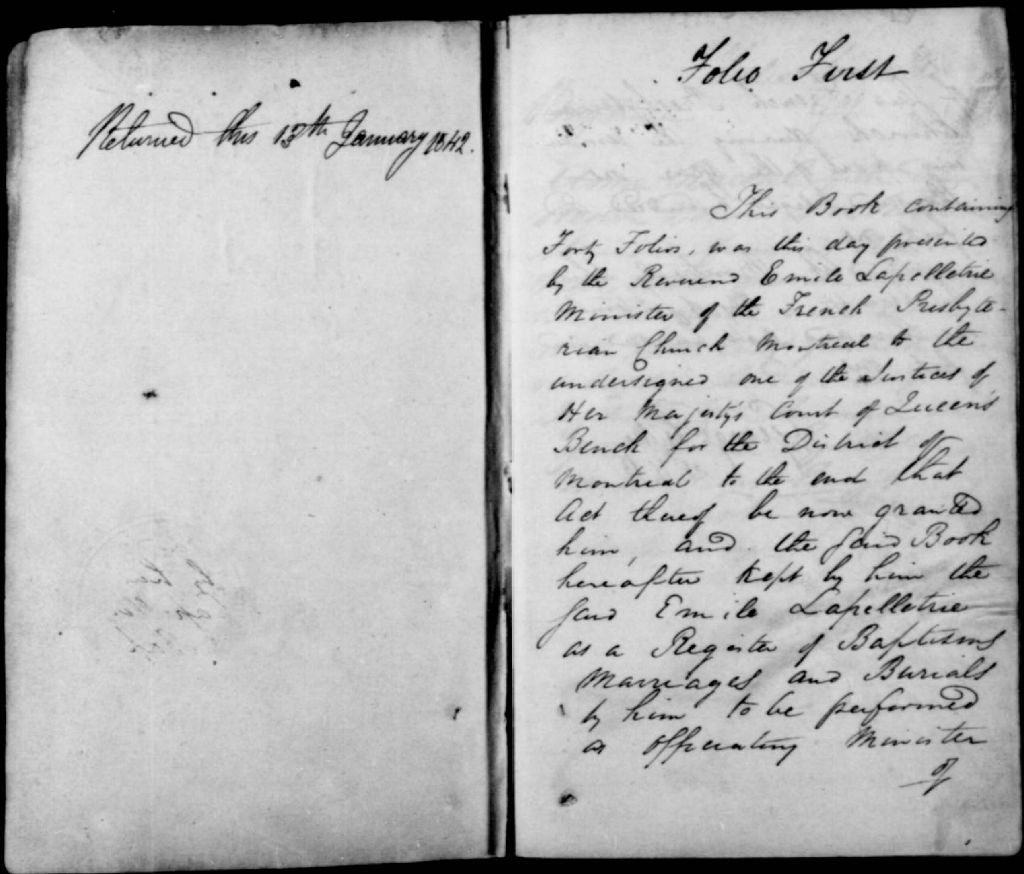 Returned this 13th January 1842.
Folio First
This Book containing
Forty Folios, was this day presented
by the Reverend Emile Lapelletrie
Minister of the French Presbyte-
rian Church Montreal to the
undersigned one of the Justices of
Her Majesty's Court of Queen's
Bench for the District of
Montreal to the end that
Act thereof be now granted
him, and the said Book
hereafter kept by him the
said Emile Lapelletrie
as a Register of Baptisms
Marriages and Burials
by him to be performed
as officiating Minister
of